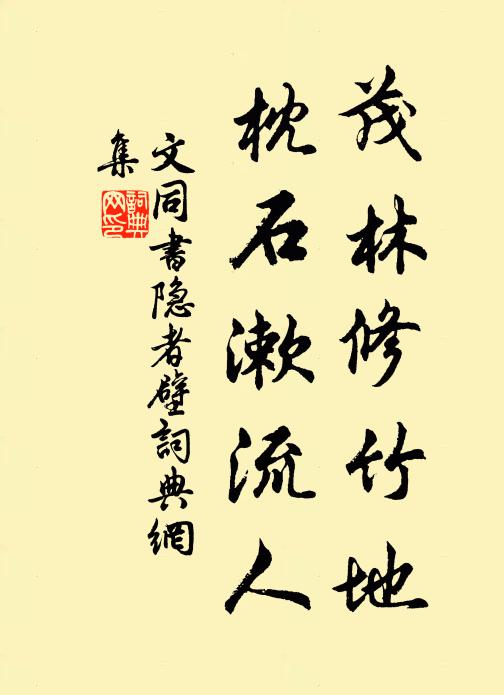 茂林修竹地
枕石漱流人
文同書隐者壁詞典網
集
詞典
网印